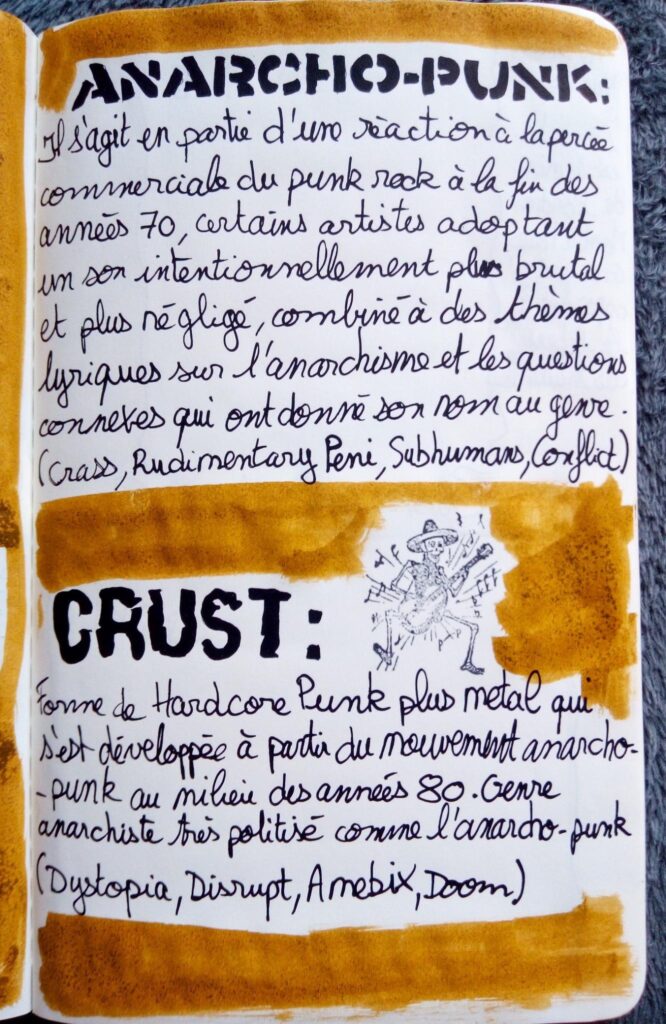 ANARCHO-PUNK:
Il s'agit en partie d'une réaction à la percée
commerciale du punk rock à la fin des
années 70, certains artistes adoptant
un son intentionnellement plus brutal
et plus négligé, combiné à des thèmes
lyriques sur l'anarchisme et les questions
connexes qui ont donné son nom au genre.
(Crass, Rudimentary Peni, Subhumans, Conflict)
CRUST:
Forme de Hardcore Punk plus metal qui
s'est développée à partir du mouvement anarcho-
-punk au milieu des années 80. Genre
anarchiste très politisé comme l'anarcho-punk
(Dystopia, Disrupt, Amebix, Doom)